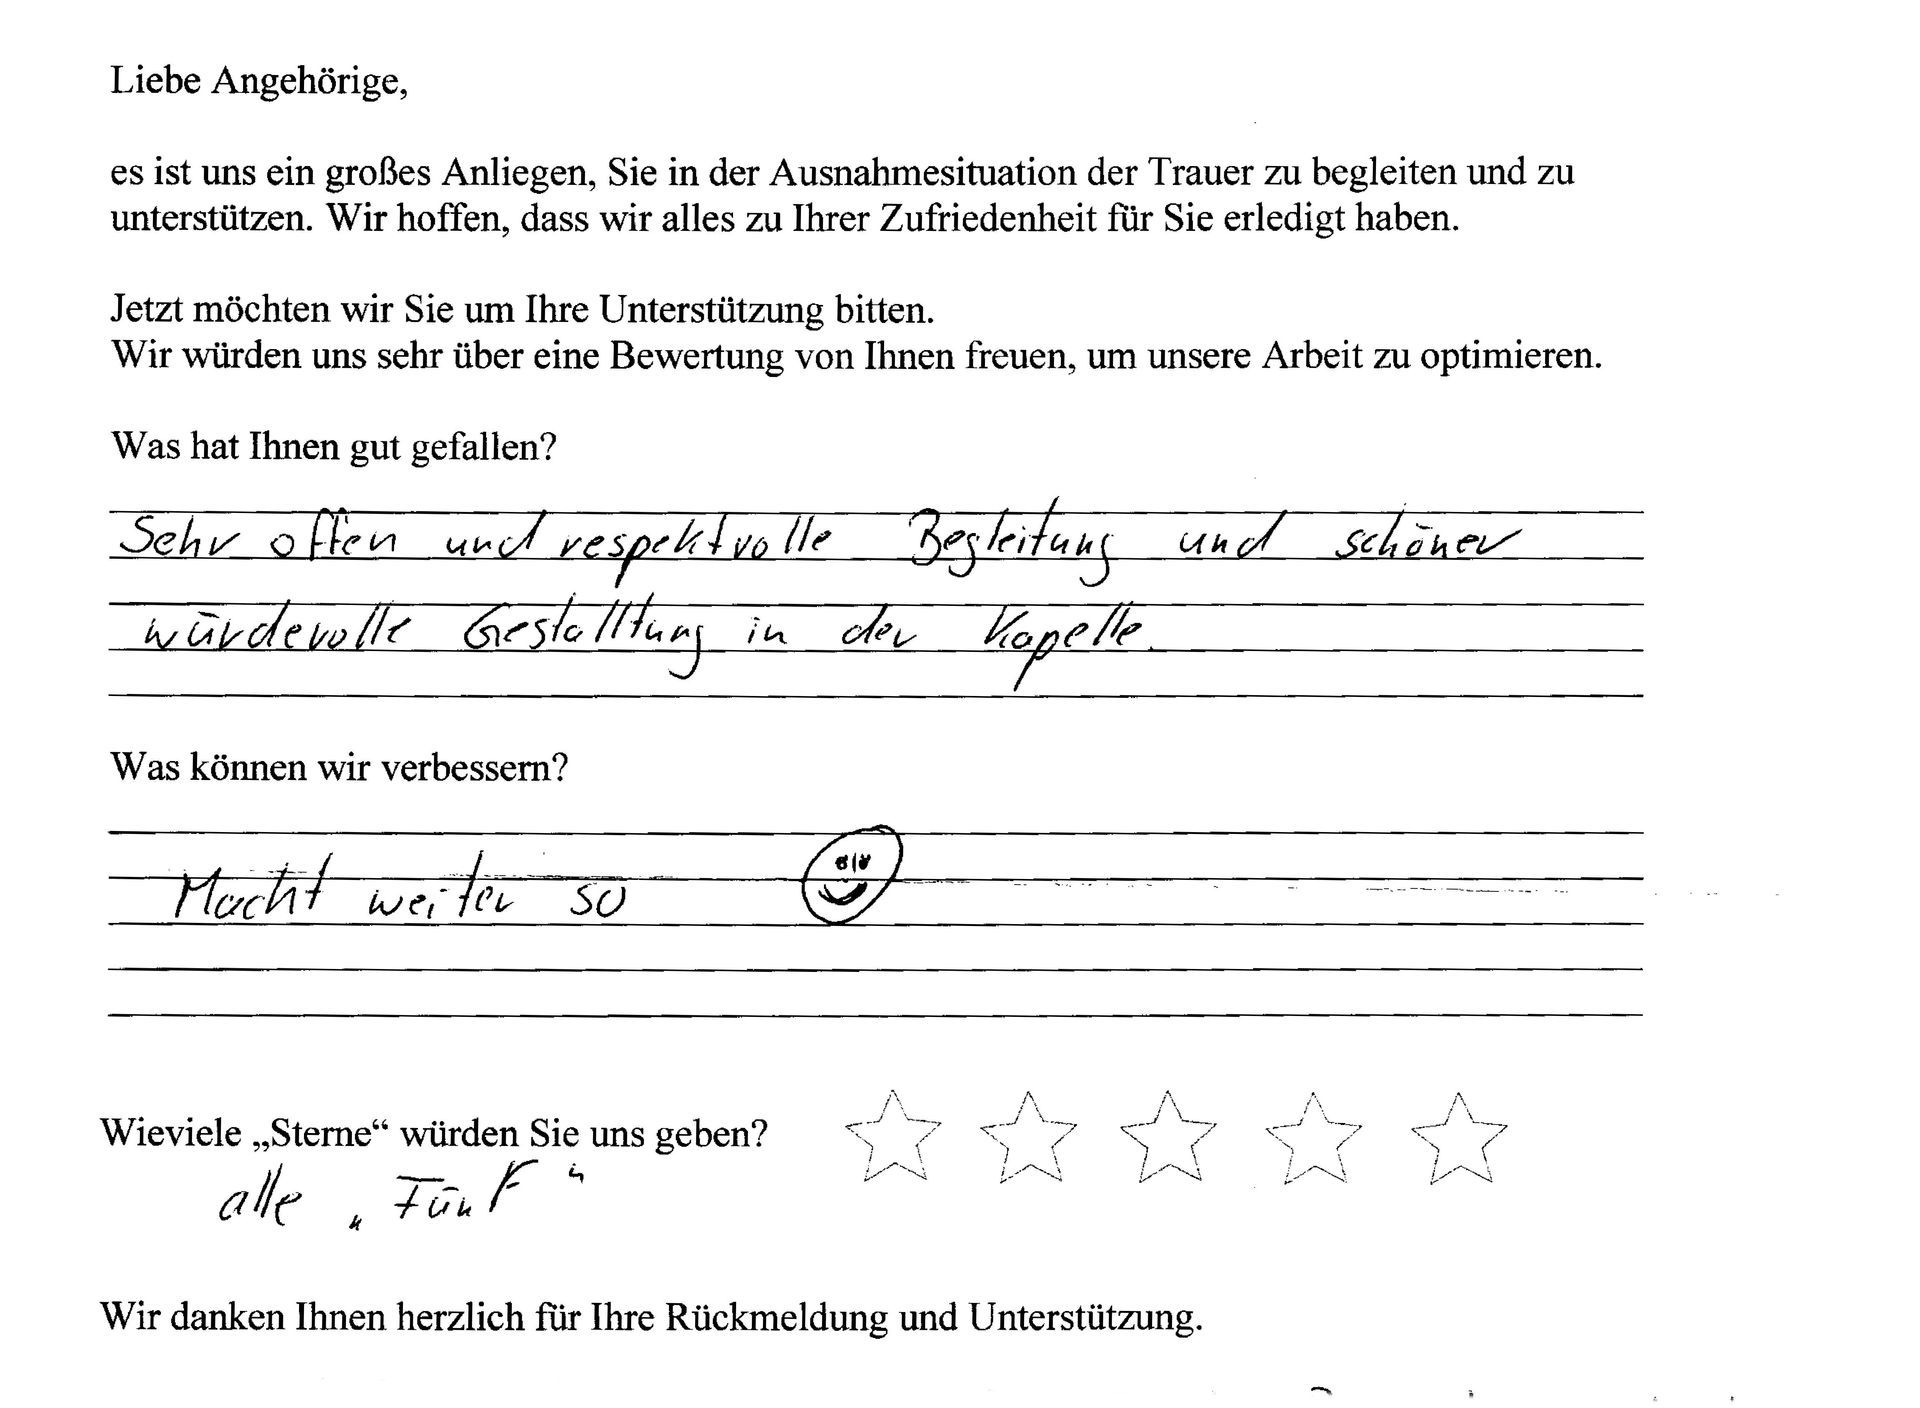 Liebe Angehörige,
es ist uns ein großes Anliegen, Sie in der Ausnahmesituation der Trauer zu begleiten und zu
unterstützen. Wir hoffen, dass wir alles zu Ihrer Zufriedenheit für Sie erledigt haben.
Jetzt möchten wir Sie um Ihre Unterstützung bitten.
Wir würden uns sehr über eine Bewertung von Ihnen freuen, um unsere Arbeit zu optimieren.
Was hat Ihnen gut gefallen?
Sehr offen und respektvolle Begleitung und schöner
würdevolle Gestalltung in der Kapelle.
Was können wir verbessern?
Macht weiter so
Wieviele „Sterne“ würden Sie uns geben?
alle „Fünf“
Wir danken Ihnen herzlich für Ihre Rückmeldung und Unterstützung.